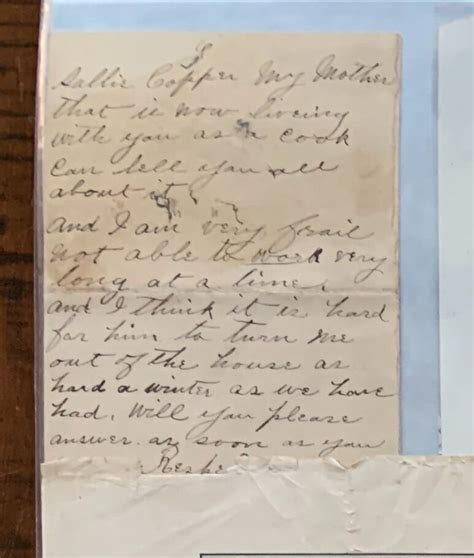 Sallie Copper My Mother
that is now liveing
with you as a cook
can tell you all
about it
And I am very frail
not able to work very
long at a time,
and I think it is hard
for him to turn me
out of the house as
hard a winter as we have
had. Will you please
answer as soon as you